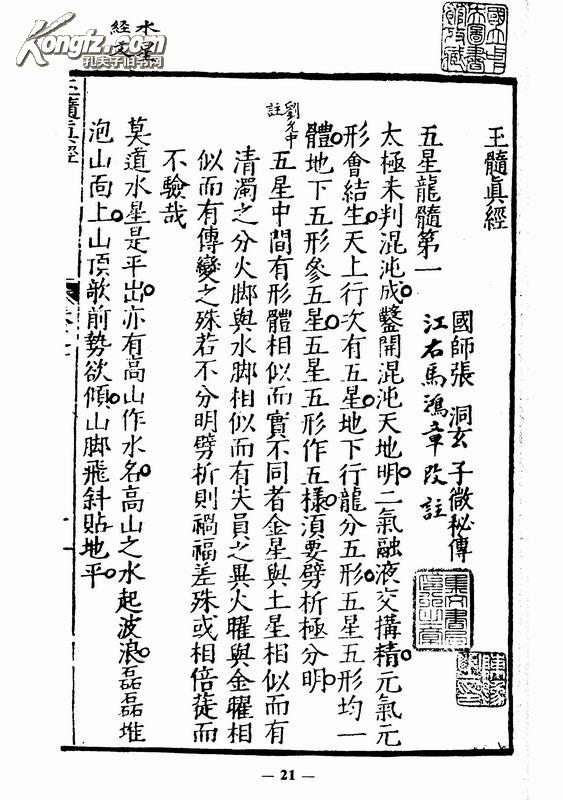 玉髓真經
國師張 洞玄 子微秘傳
江右馬鴻章改註
五星龍髓第一
太極未判混沌成鑿開混沌天地明二氣融液交搆精元氣元
形會結生天上行次有五星地下行龍分五形五星五形均一
體地下五形參五星五星五形作五樣須要劈析極分明
劉允中註
五星中間有形體相似而實不同者金星與土星相似而有
清濁之分火脚與水脚相似而有尖員之異火曜與金曜相
似而有傳變之殊若不分明劈析則禍福差殊或相倍蓰而
不驗哉
莫道水星是平出亦有高山作水名高山之水起波浪磊磊堆
泡山面上山頂欹前勢欲傾山脚飛斜貼地平
水星
經文
玉髓真經
Kongfz.com
孔夫子旧书网
— 21 —